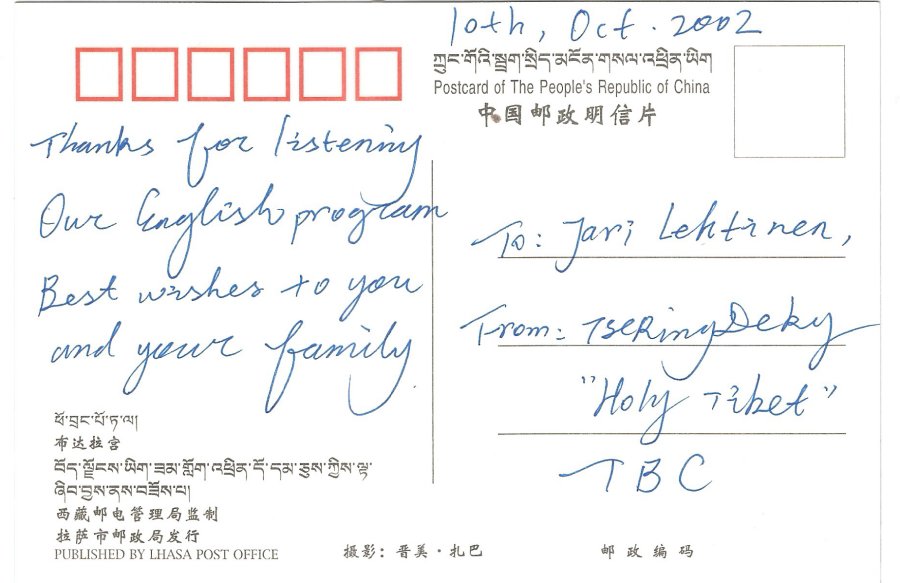 10th, Oct. 2002
ཀྲུང་གོའི་སྦྲག་སྲིད་མངོན་གསལ་འཕྲིན་ཡིག
Postcard of The People's Republic of China
中国邮政明信片
Thanks for listening
Our English program
Best wishes to you
and your family.
To: Jari Lehtinen,
From: TseRing Deky
"Holy Tibet"
TBC
ཕོ་བྲང་པོ་ཏ་ལ།
布达拉宫
བོད་ལྗོངས་ཡིག་ཟམ་གློག་འཕྲིན་དོ་དམ་ཅུས་ཀྱིས་ལྟ་
ཞིབ་བྱས་ནས་བཟོས་པ།
西藏邮电管理局监制
拉萨市邮政局发行
PUBLISHED BY LHASA POST OFFICE
摄影：晋美·扎巴
邮政编码